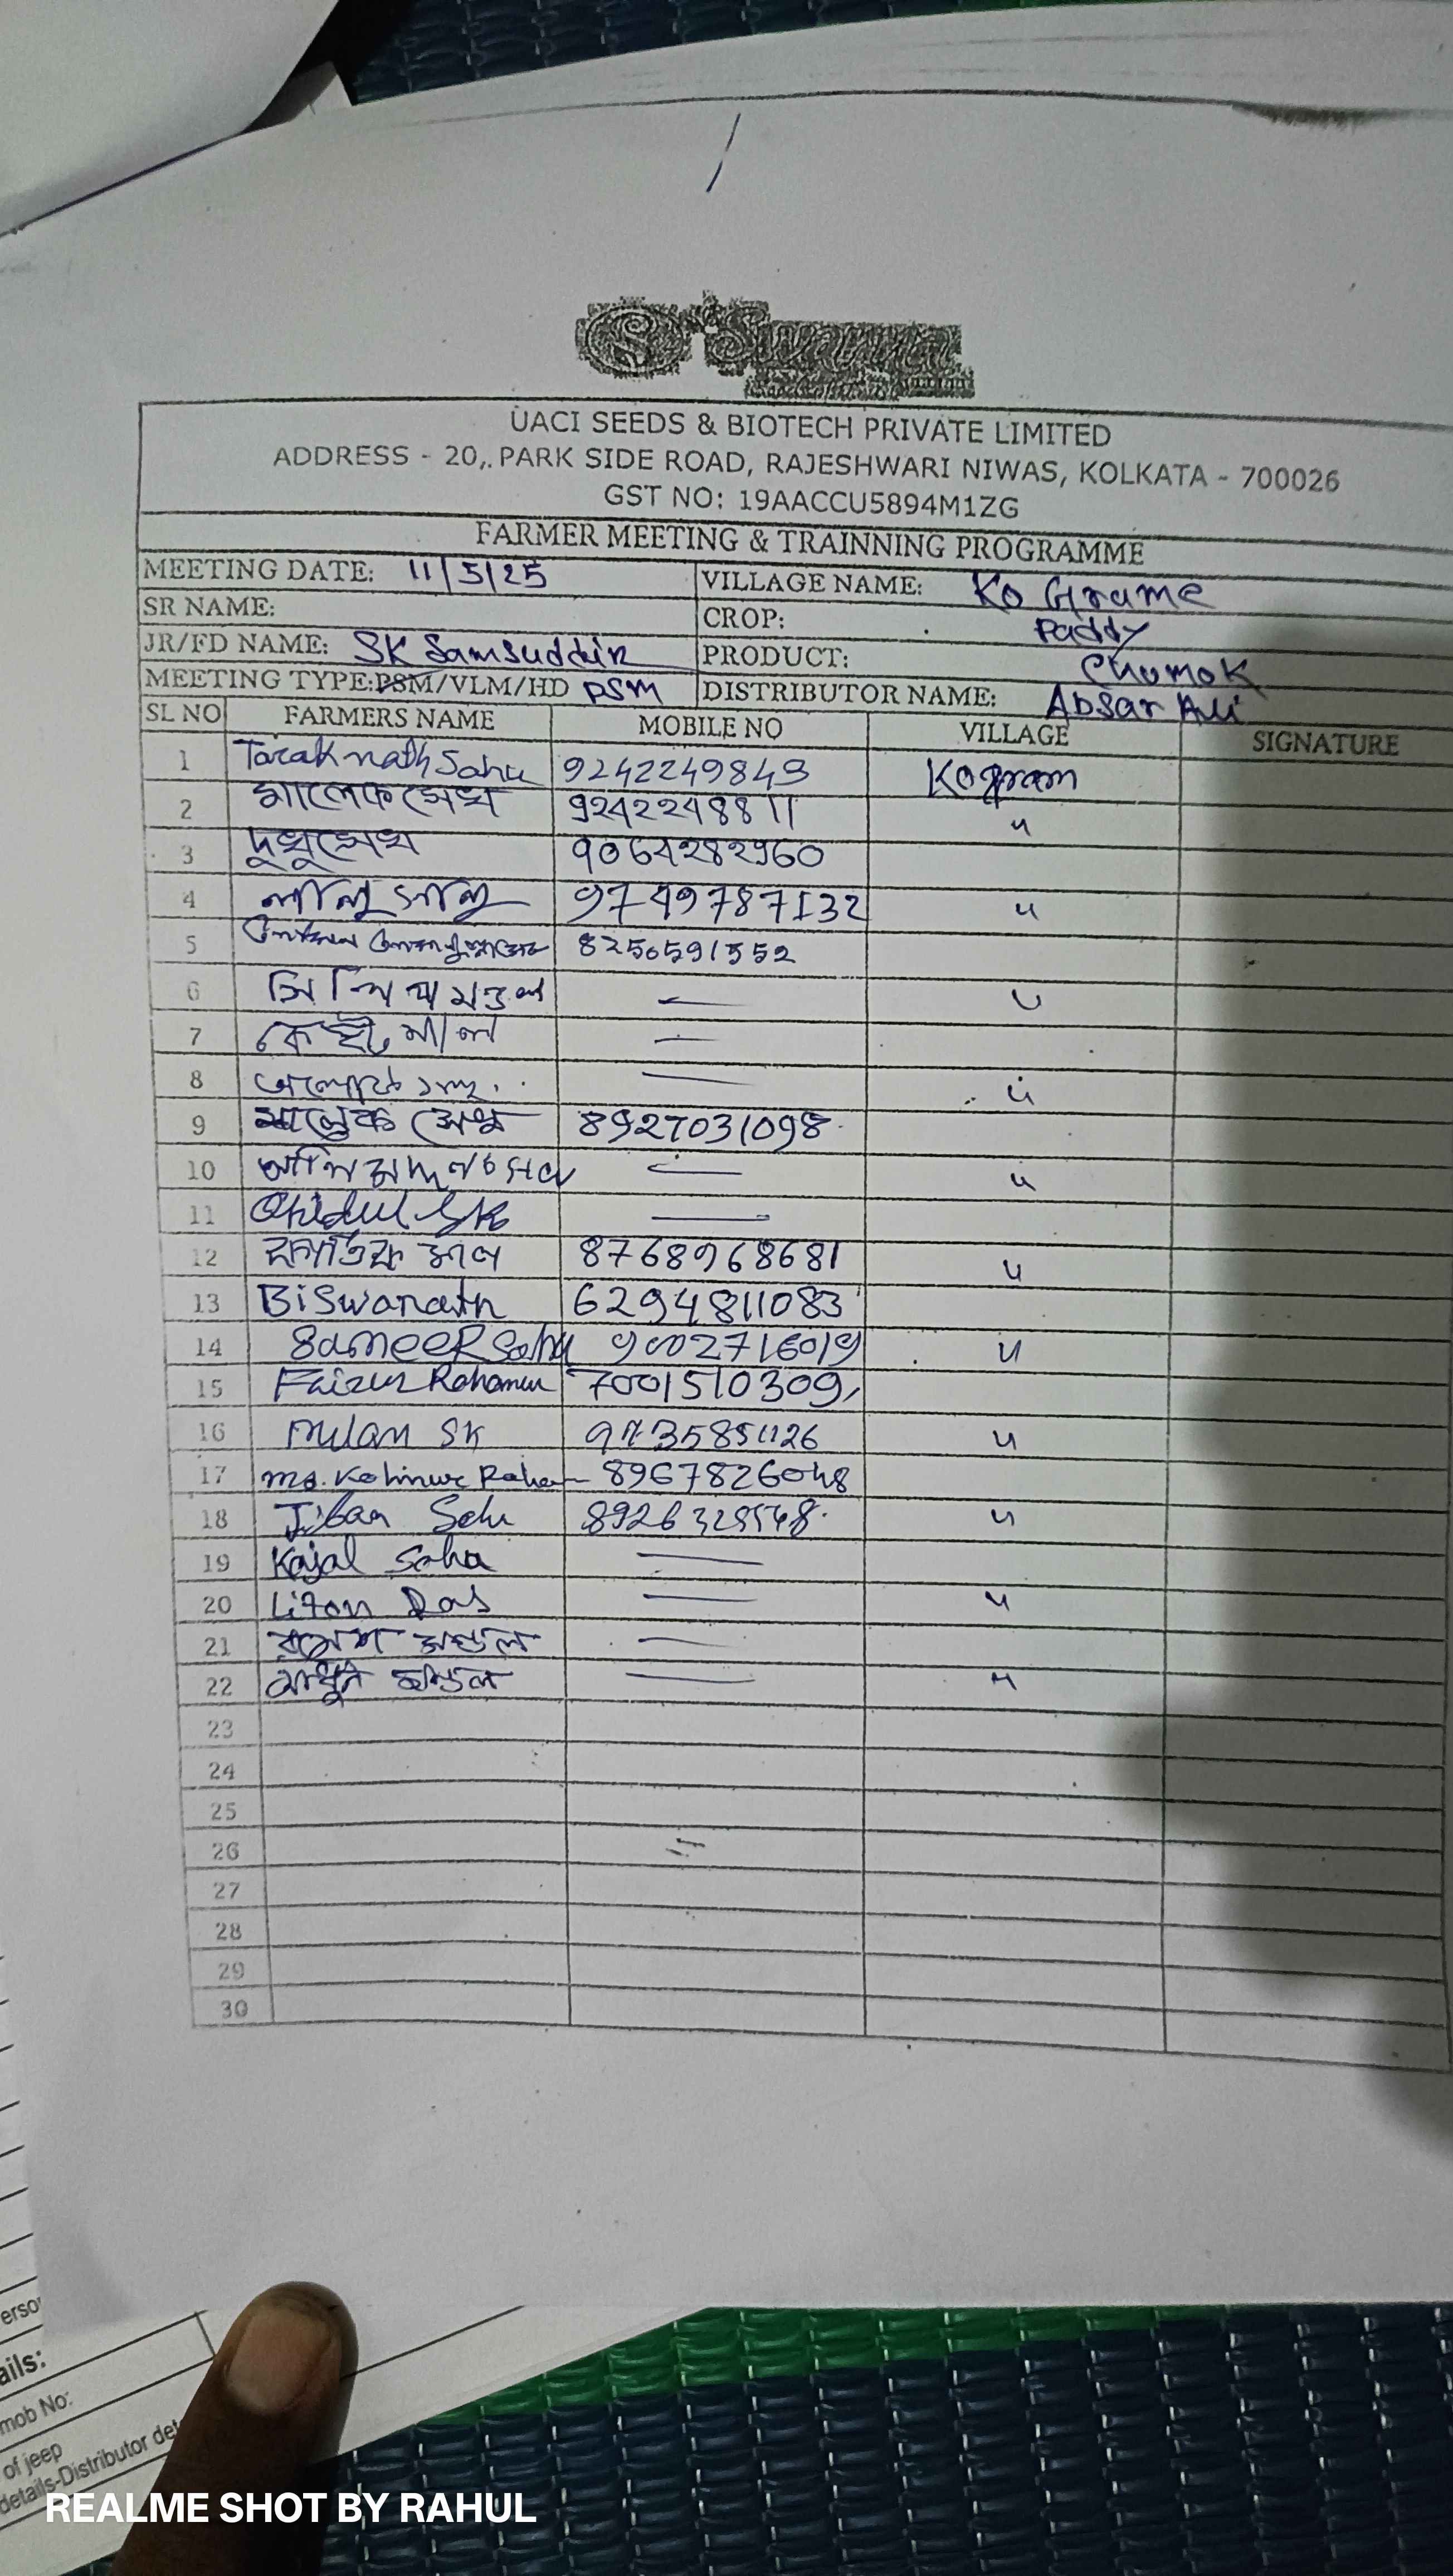 Suvarna
UACI SEEDS & BIOTECH PRIVATE LIMITED
ADDRESS - 20,. PARK SIDE ROAD, RAJESHWARI NIWAS, KOLKATA - 700026
GST NO: 19AACCU5894M1ZG
FARMER MEETING & TRAINNING PROGRAMME
MEETING DATE: 11/5/25 VILLAGE NAME: Ko Grame
SR NAME: CROP: Paddy
JR/FD NAME: SK Samsuddin PRODUCT: Chomok
MEETING TYPE:PSM/VLM/HD PSM DISTRIBUTOR NAME: Absar Ali
SL NO FARMERS NAME MOBILE NO VILLAGE SIGNATURE
1 Taraknath Saha 9242249849 Kogram
2 মালেক সেখ 9242248811 "
3 দুখু সেখ 9064282960
4 লালু সালু 9749787132 "
5 8250591552
6 মণ্ডল — "
7 মাল —
8 — "
9 মালেক সেখ 8927031098
10 — "
11 Ohidul SK —
12 কার্তিক মাল 8768968681 "
13 Biswanath 6294811083
14 Sameer Saha 9002716019 "
15 Faizur Rahaman 7001510309
16 Milan SK "
17 Md. Kohinur Rahaman 8967826048
18 Jiban Saha "
19 Kajal Saha —
20 Liton Das — "
21 রমেশ মণ্ডল —
22 মণ্ডল — "
23
24
25
26
27
28
29
30
ails:
mob No:
of jeep
details-Distributor det
REALME SHOT BY RAHUL